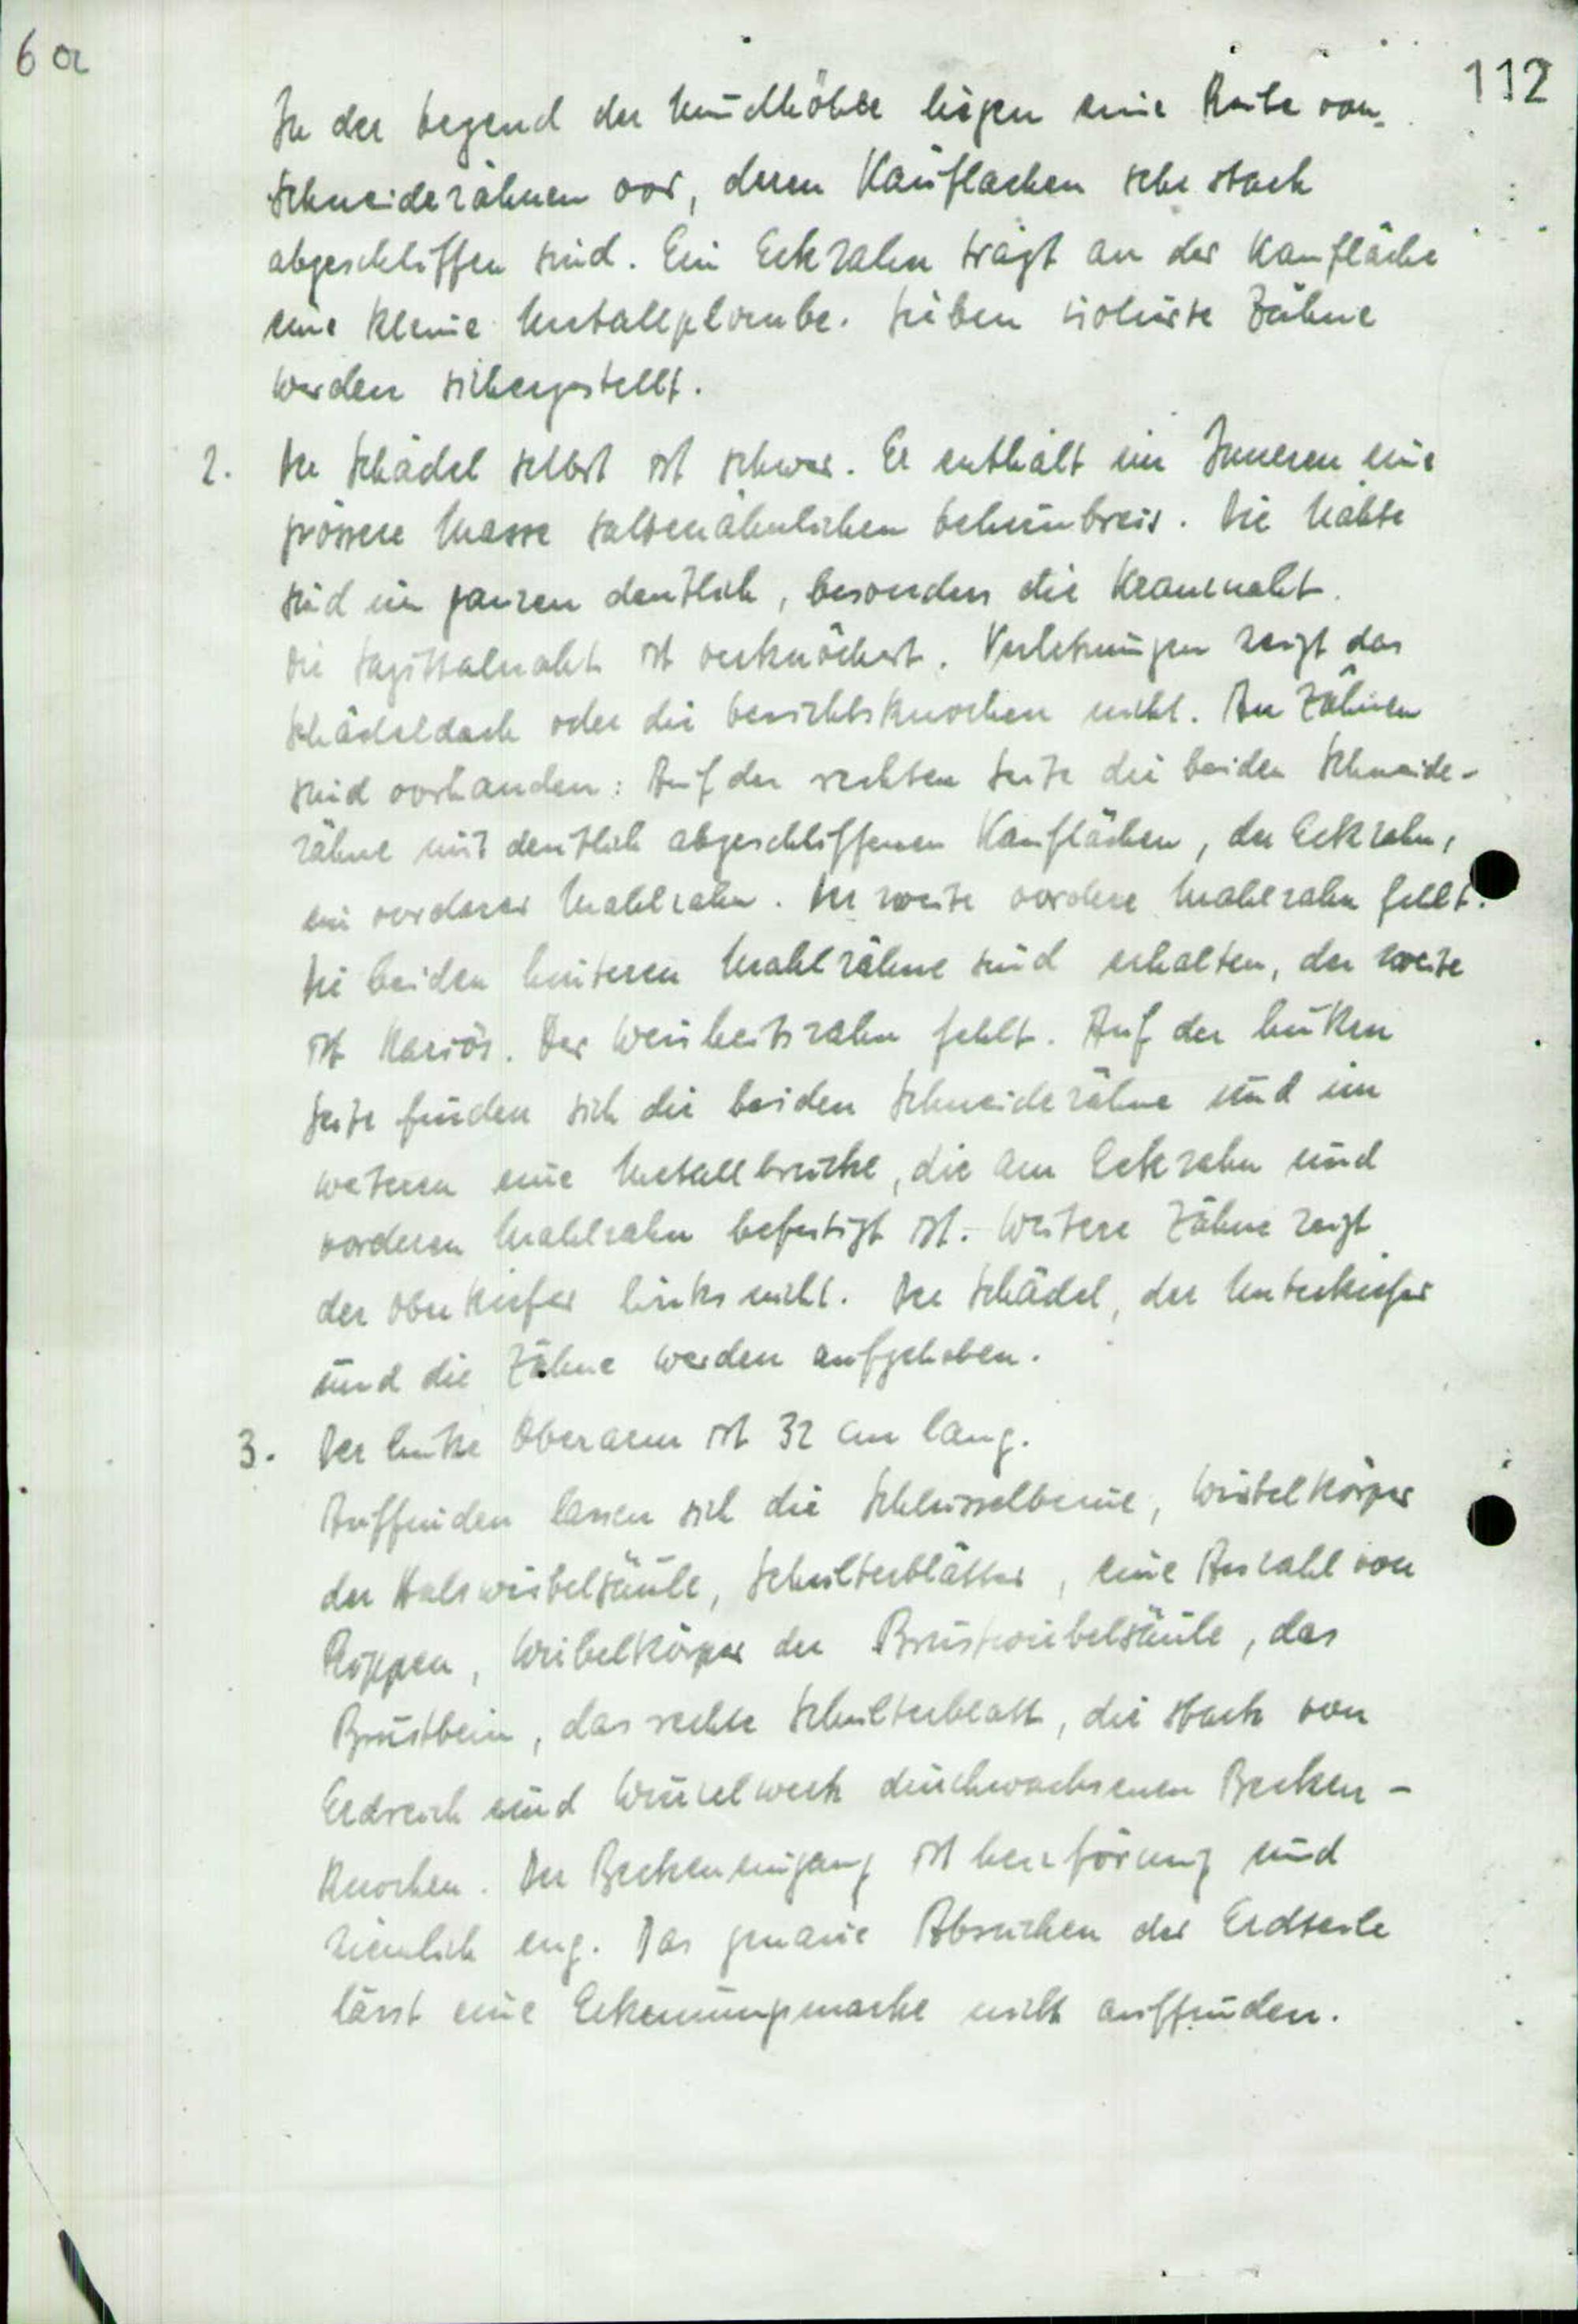 6a
112
In der Gegend der Mundhöhle liegen eine Reihe von
Schneidezähnen vor, deren Kauflächen sehr stark
abgeschliffen sind. Ein Eckzahn trägt an der Kaufläche
eine kleine Metallplombe. Sieben isolierte Zähne
werden sichergestellt.
2. Der Schädel selbst ist schwer. Er enthält im Inneren eine
grössere Masse salbenähnlichen Gehirnbreis. Die Nähte
sind im ganzen deutlich, besonders die Kranznaht.
Die Sagittalnaht ist verknöchert. Verletzungen zeigt das
Schädeldach oder die Gesichtsknochen nicht. An Zähnen
sind vorhanden: Auf der rechten Seite die beiden Schneide-
zähne mit deutlich abgeschliffenen Kauflächen, der Eckzahn,
ein vorderer Mahlzahn. Der zweite vordere Mahlzahn fehlt.
Die beiden hinteren Mahlzähne sind erhalten, der zweite
ist kariös. Der Weisheitszahn fehlt. Auf der linken
Seite finden sich die beiden Schneidezähne und im
weiteren eine Metallbrücke, die am Eckzahn und
vorderen Mahlzahn befestigt ist. - Weitere Zähne zeigt
der Oberkiefer links nicht. Der Schädel, der Unterkiefer
und die Zähne werden aufgehoben.
3. Der linke Oberarm ist 32 cm lang.
Auffinden lassen sich die Schlüsselbeine, Wirbelkörper
der Halswirbelsäule, Schulterblätter, eine Anzahl von
Rippen, Wirbelkörper der Brustwirbelsäule, das
Brustbein, das rechte Schulterblatt, die stark von
Erdreich und Wurzelwerk durchwachsenen Becken-
knochen. Der Beckeneingang ist herzförmig und
ziemlich eng. Das genaue Absuchen der Erdteile
lässt eine Erkennungsmarke nicht auffinden.